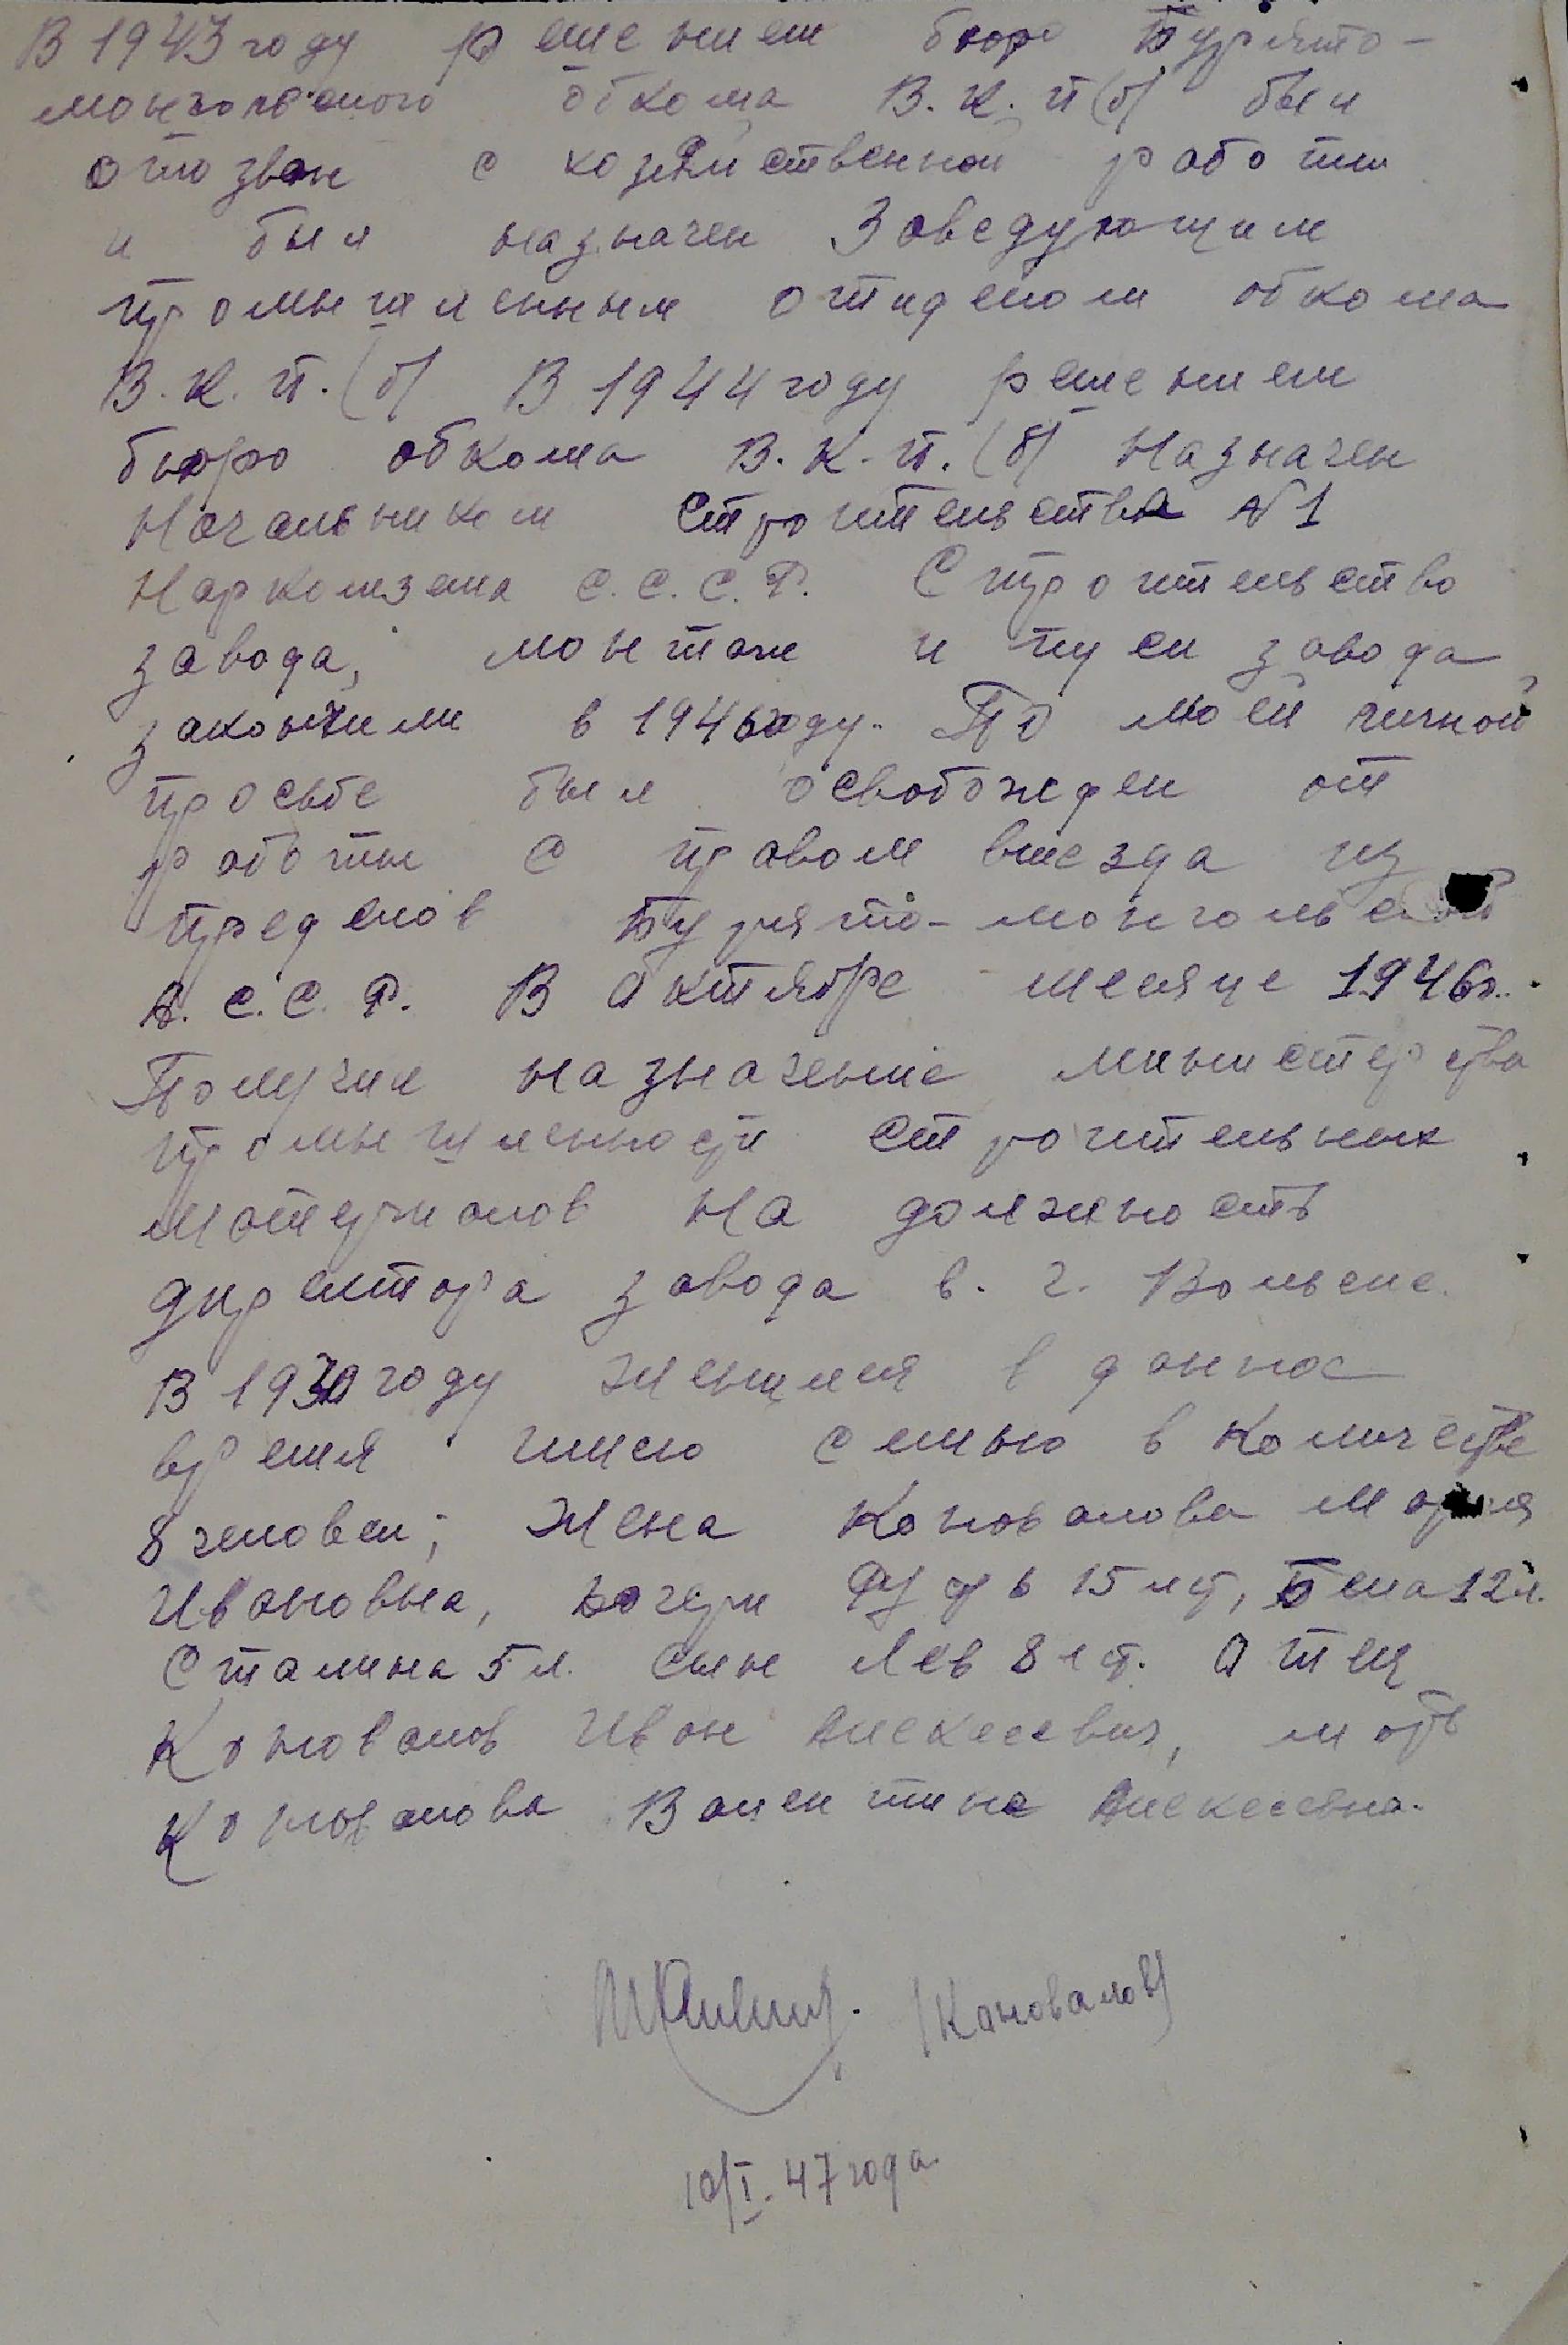 В 1943 году решением бюро Бурято-
монгольского обкома В.К.П(б) был
отозван с хозяйственной работы
и был назначен Заведующим
промышленным отделом обкома
В.К.П.(б) В 1944 году решением
бюро обкома В.К.П.(б) Назначен
Начальником Строительства №1
Наркомзема С.С.С.Р. Строительство
завода, монтаж и пуск завода
закончили в 1946 году. По моей личной
просьбе был освобожден от
работы с правом выезда из
пределов Бурято-монгольской
А.С.С.Р. В Октябре месяце 1946г.
Получил назначение министерства
промышленности строительных
материалов на должность
директора завода в. г. Вольске.
В 1930 году женился в данное
время имею семью в количестве
8 человек; Жена Коновалова Мария
Ивановна, дочери 15 лет, Бела 12л.
Сталина 5 л. Сын Лев 8 лет. Отец
Коновалов Иван Алексеевич, мать
Коновалова Валентина Алексеевна.
(Коновалов)
10/I. 47 года.